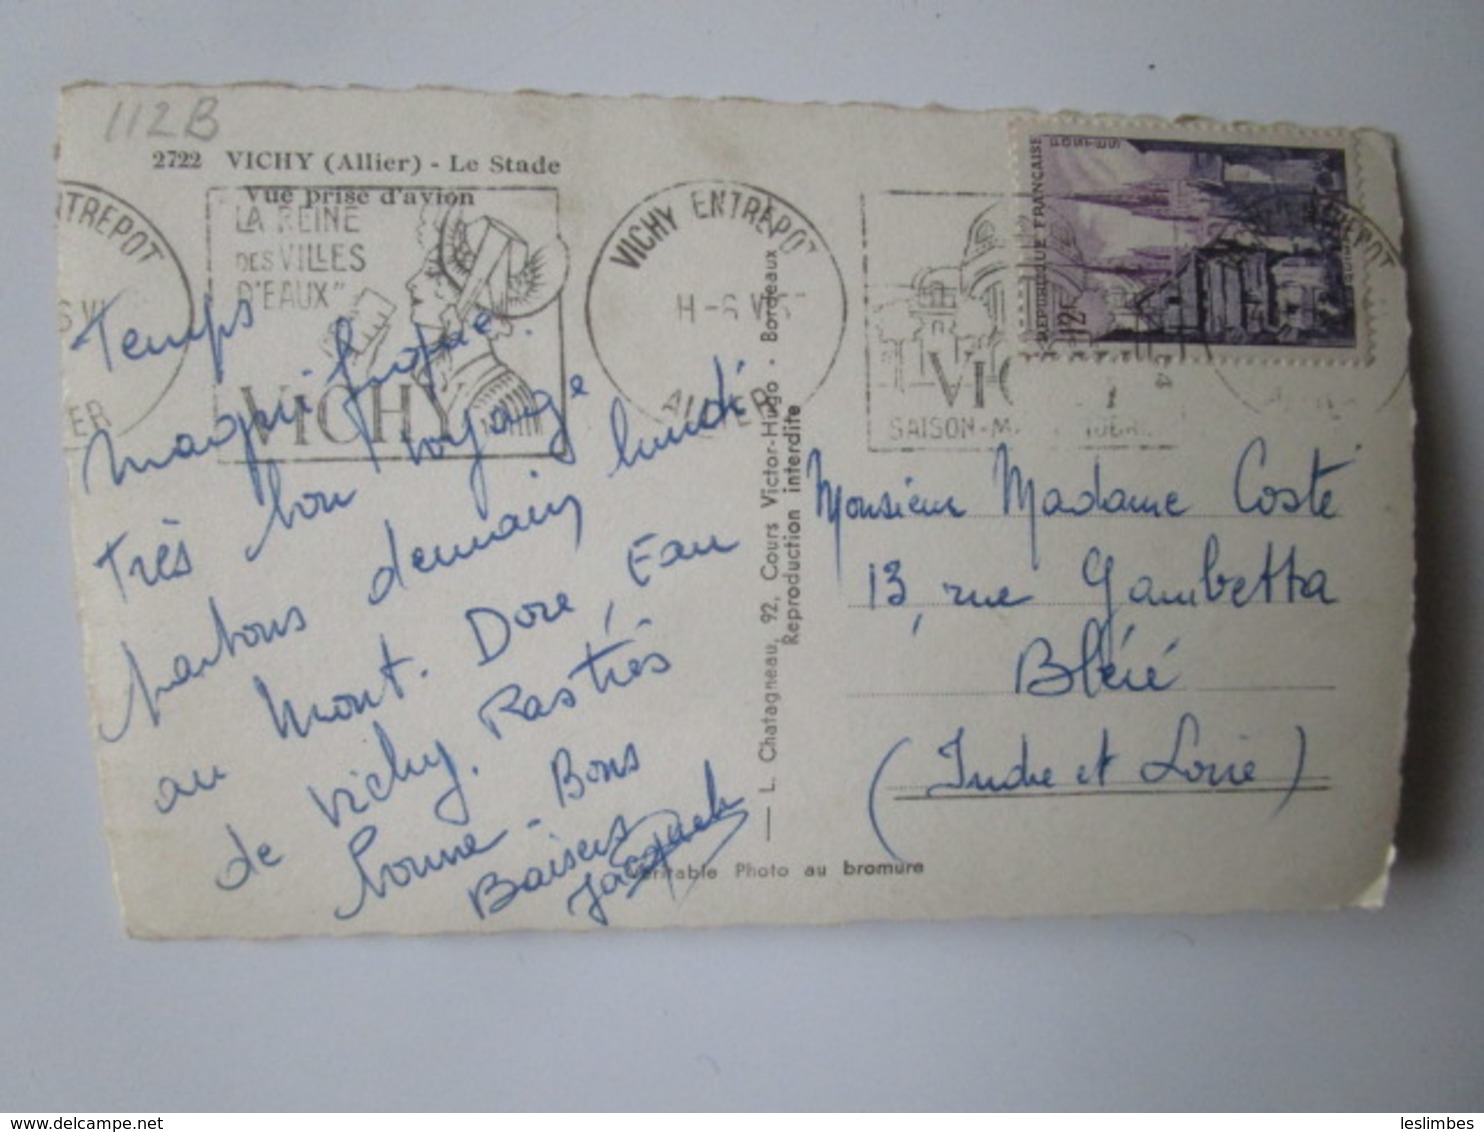 112B
2722 VICHY (Allier) - Le Stade
Vue prise d'avion
NTREPOT
LA REINE
DES VILLES
D'EAUX"
VICHY
VICHY ENTREPOT
H -6 VI
ALLIER
REPUBLIQUE FRANCAISE
POSTES
12F
SAISON
Temps
magnifique.
très bon voyage
partons demain lundi
au Mont. Dore, Eau
de Vichy. Pas très
bonne - Bons
Baisers
L. Chatagneau, 92, Cours Victor-Hugo - Bordeaux
Reproduction interdite
Véritable Photo au bromure
Monsieur Madame Coste
13, rue Gambetta
Bléré
(Indre et Loire)
leslimbes